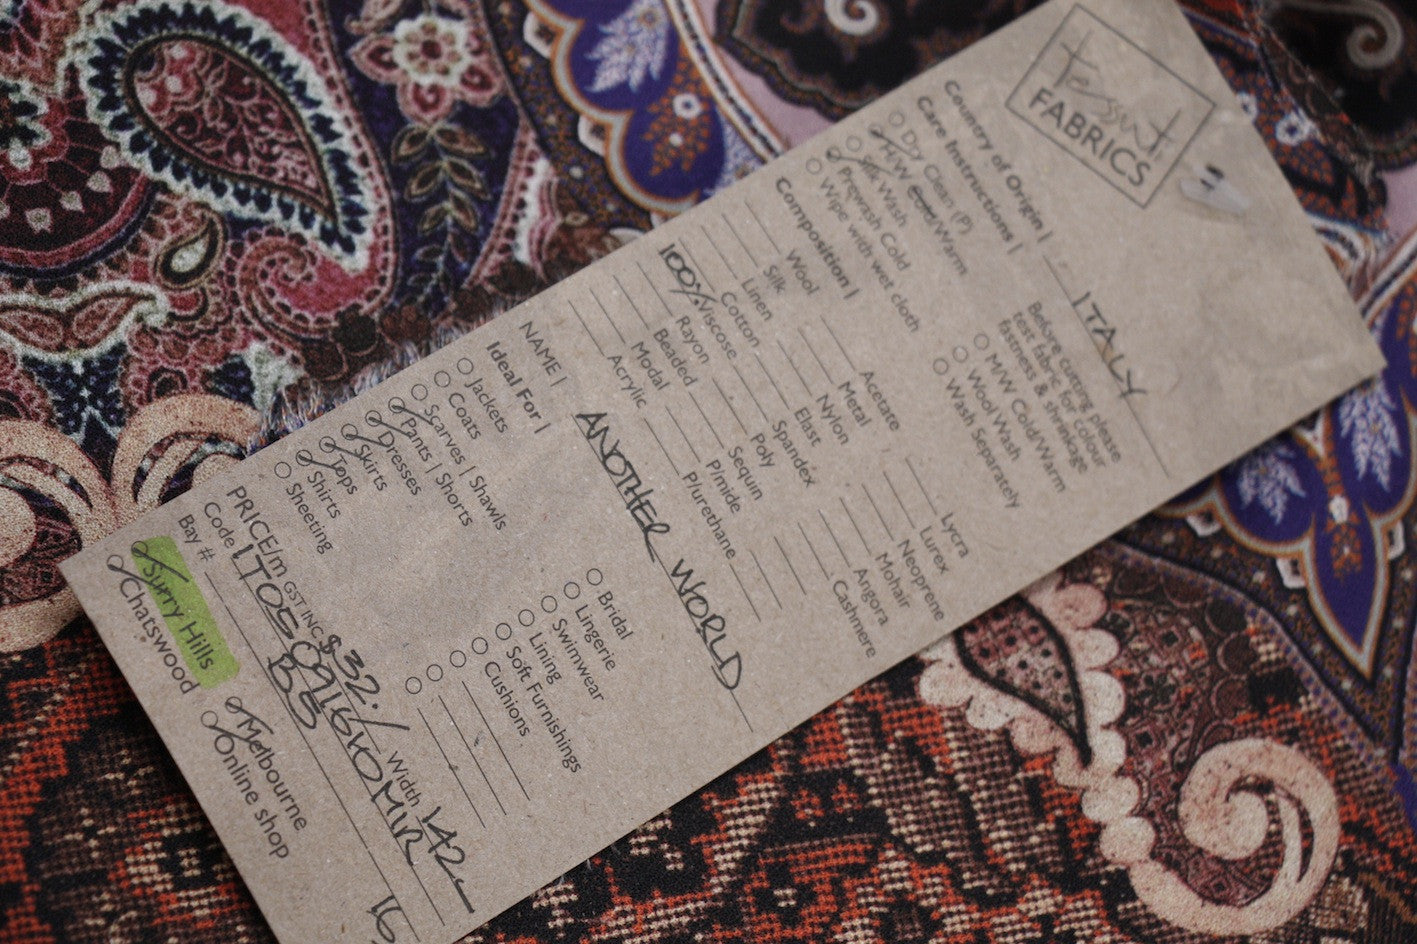 tessuti
FABRICS
Country of Origin | ITALY
Care Instructions |
Before cutting please
test fabric for colour
fastness & shrinkage
Dry Clean (P)
H/W Cold/Warm
Silk Wash
Prewash Cold
Wipe with wet cloth
M/W Cold/Warm
Wool Wash
Wash Separately
Composition |
Wool
Silk
Linen
Cotton
100% Viscose
Rayon
Beaded
Modal
Acrylic
Acetate
Metal
Nylon
Elast
Spandex
Poly
Sequin
P/mide
P/urethane
Lycra
Lurex
Neoprene
Mohair
Angora
Cashmere
NAME | ANOTHER WORLD
Ideal For |
Jackets
Coats
Scarves | Shawls
Pants | Shorts
Dresses
Skirts
Tops
Shirts
Sheeting
Bridal
Lingerie
Swimwear
Lining
Soft Furnishings
Cushions
PRICE/m GST INC $32./ Width 142
Code
Bay # B8
Surry Hills
Chatswood
Melbourne
Online shop